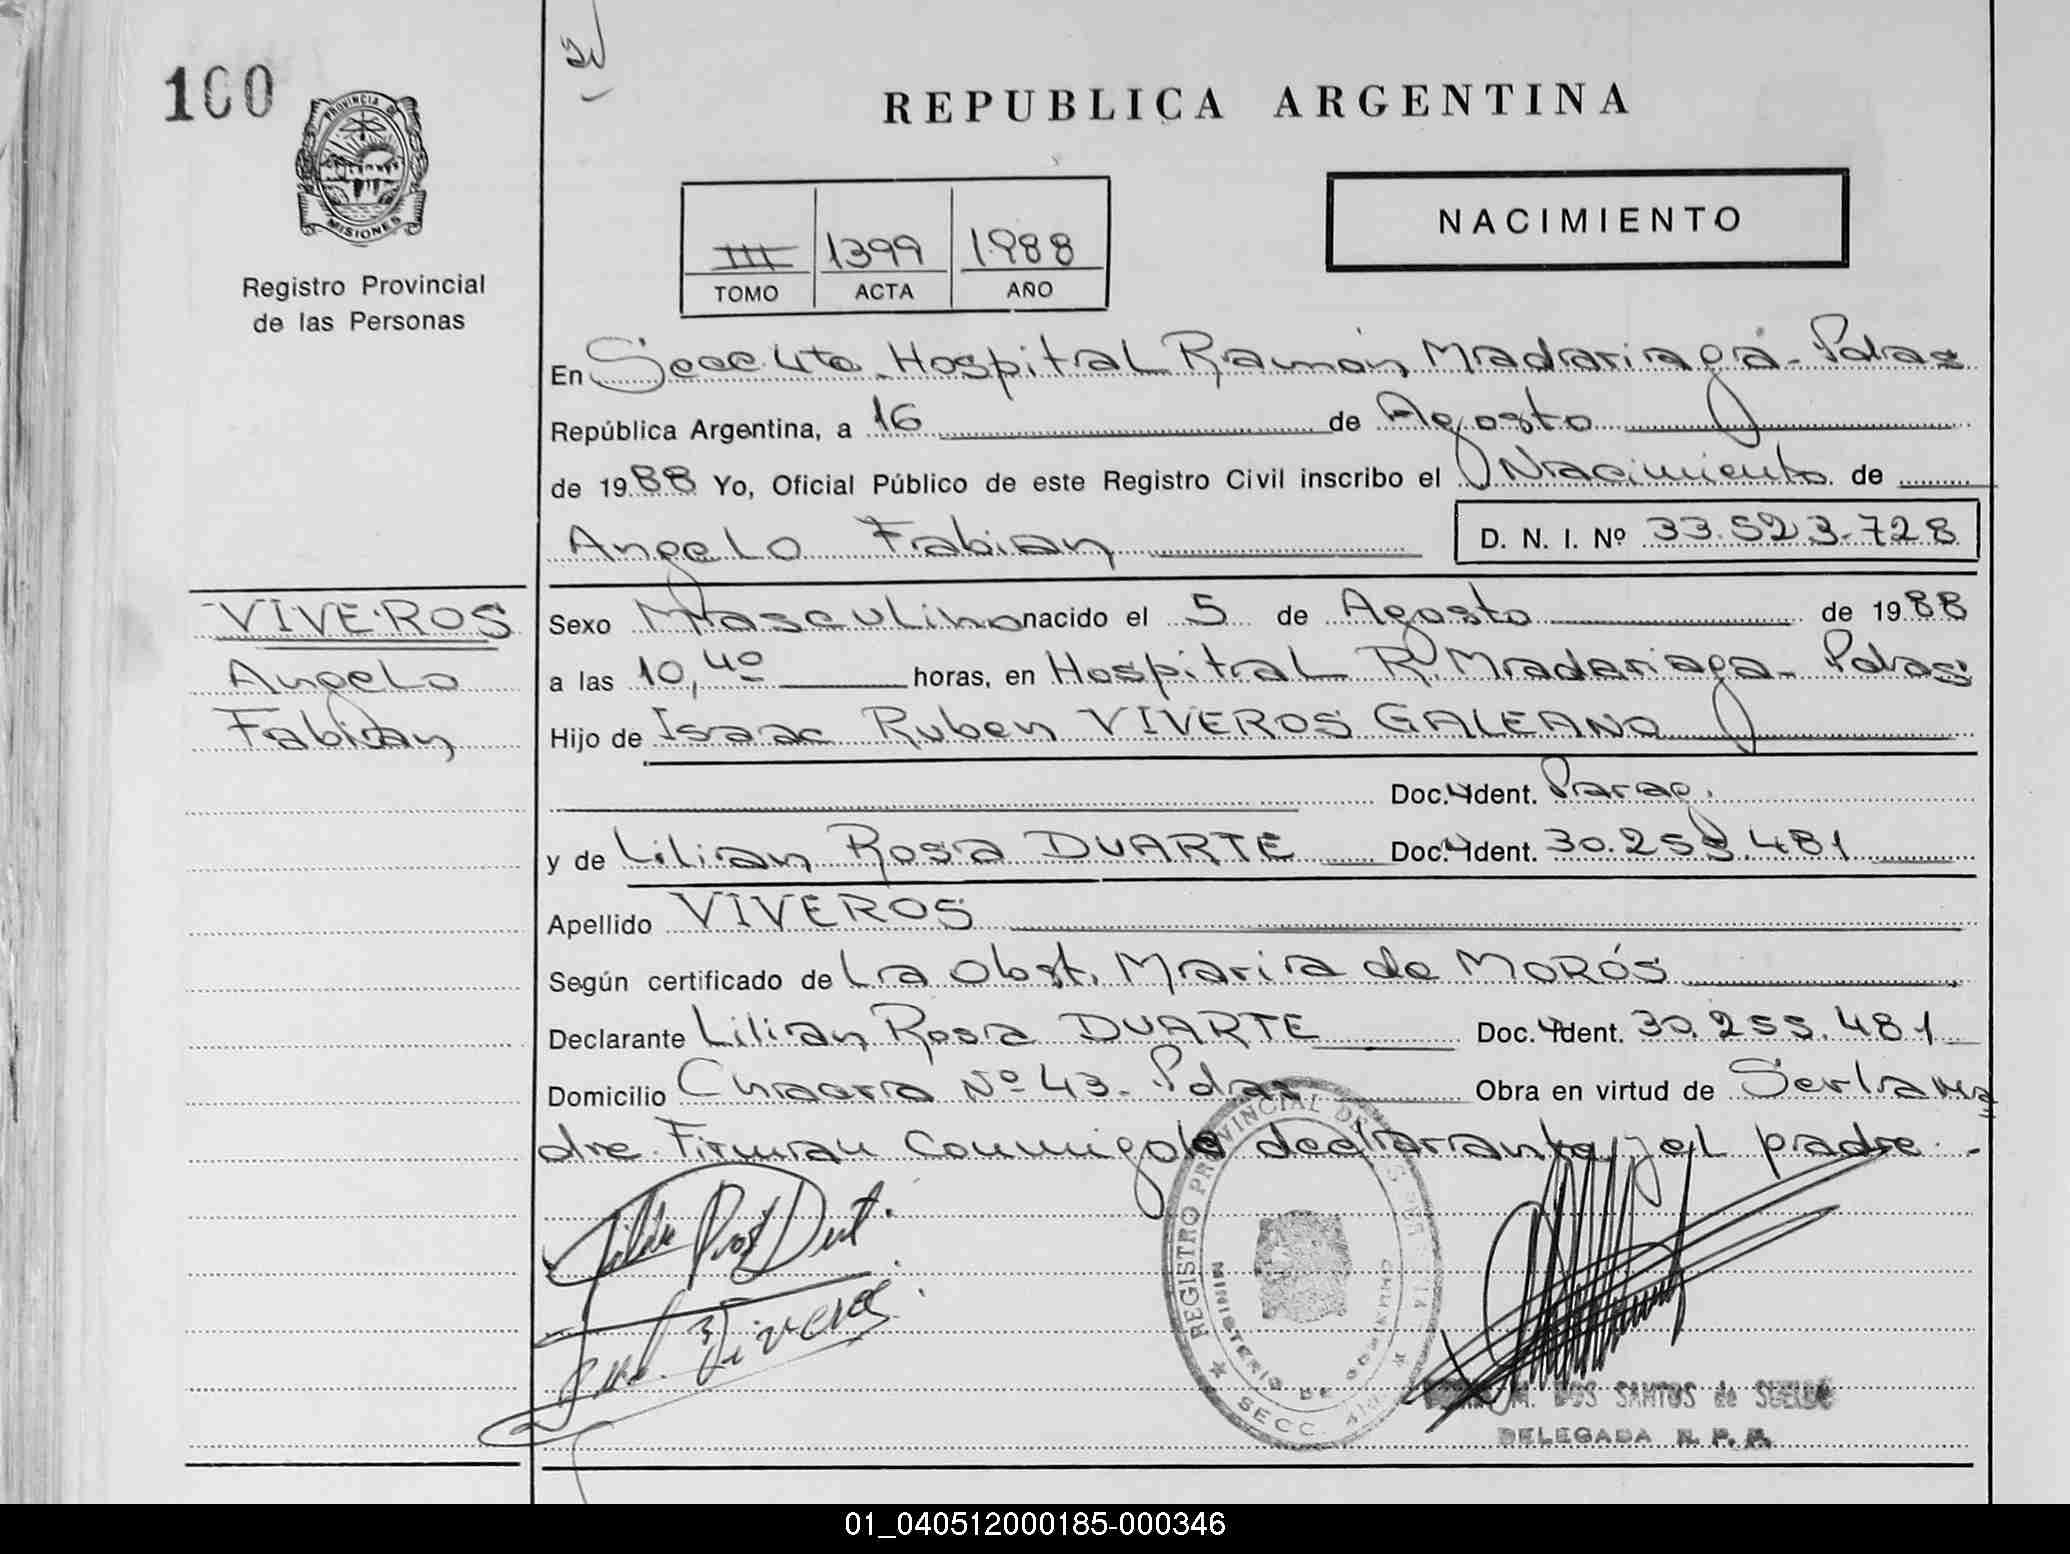 100
PROVINCIA DE
MISIONES
Registro Provincial
de las Personas
REPUBLICA ARGENTINA
NACIMIENTO
III 1399 1988
TOMO ACTA AÑO
En Secc. 4ta. Hospital Ramón Madariaga - Pdas
República Argentina, a 16 de Agosto
de 1988 Yo, Oficial Público de este Registro Civil inscribo el Nacimiento de
Angelo Fabian D. N. I. Nº 33.523.728
VIVEROS
Angelo
Fabian
Sexo Masculino nacido el 5 de Agosto de 1988
a las 10,40 horas, en Hospital R. Madariaga - Pdas
Hijo de Isaac Ruben VIVEROS GALEANO
Doc. Ident. Parag.
y de Lilian Rosa DUARTE Doc. Ident. 30.255.481
Apellido VIVEROS
Según certificado de La Obst. Maria de MORÓS
Declarante Lilian Rosa DUARTE Doc. Ident. 30.255.481
Domicilio Chacra Nº 43 - Pdas Obra en virtud de Ser la ma
dre. Firman conmigo la declarante y el padre.-
REGISTRO PROVINCIAL DE
MINISTERIO DE GOBIERNO
SECC. 4ta
M. DOS SANTOS de
DELEGADA R. P. P.
01_040512000185-000346